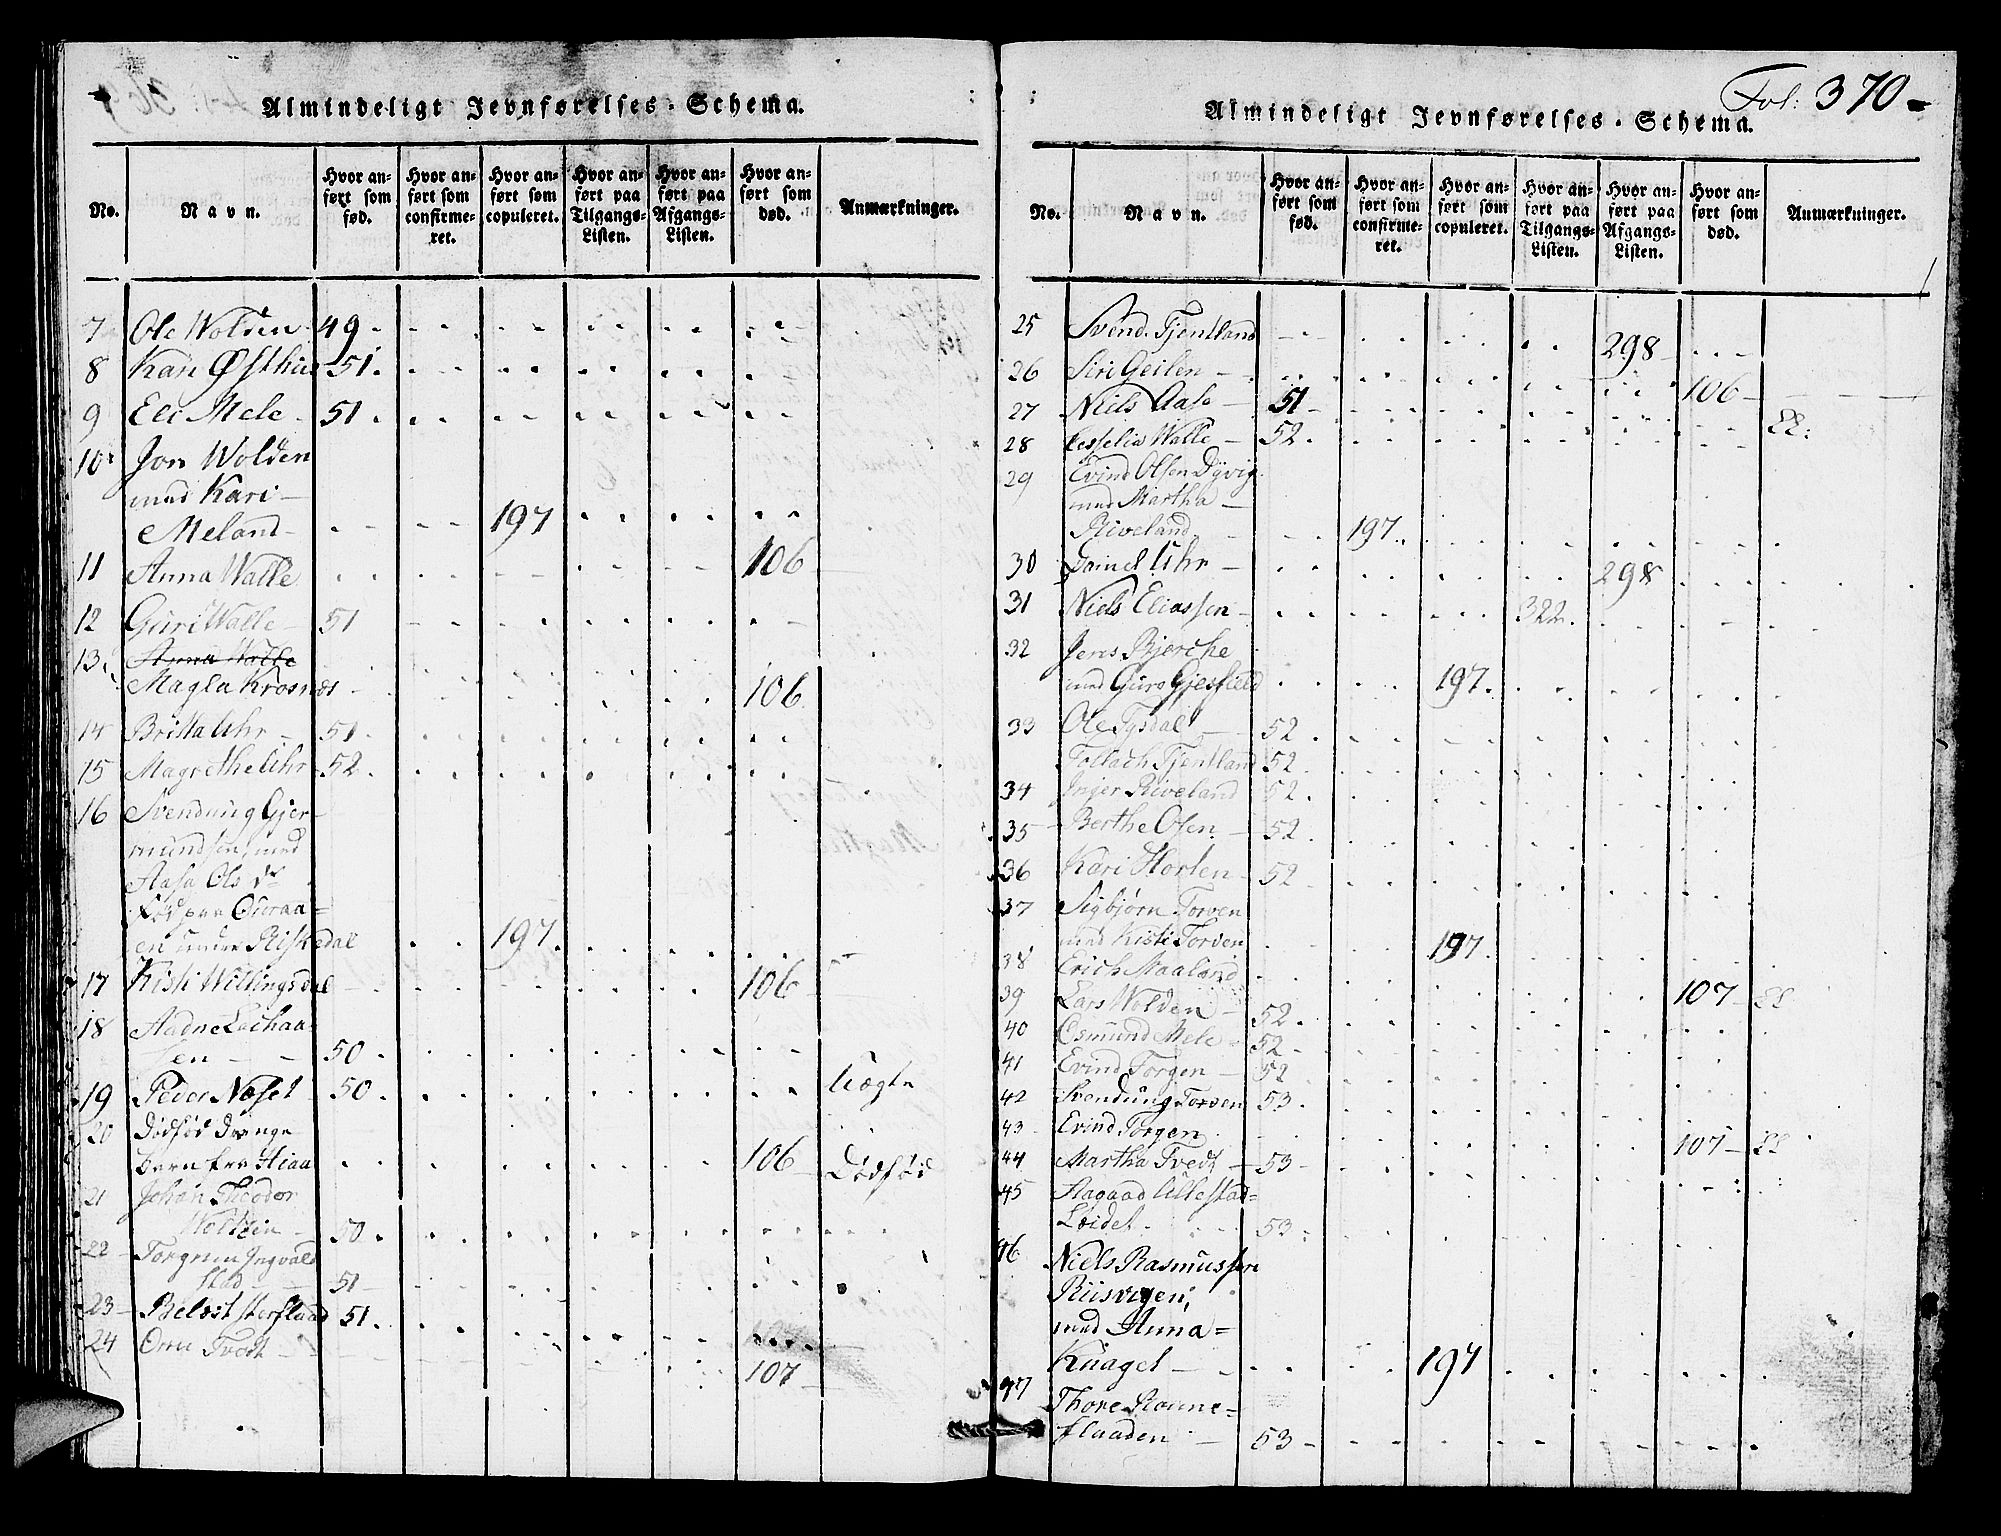 Almindeligt Jevnførelses-Schema.
No. Navn. Hvor anført som fød. Hvor anført som confirmeret. Hvor anført som copuleret. Hvor anført paa Tilgangs-Listen. Hvor anført paa Afgangs-Listen. Hvor anført som død. Anmærkninger.
7 Ole Wolden 49
8 Kari Østhus 51
9 Eli Mele 51
10 Jon Wolden
med Kari
Meland 197
11 Anna Walle 106
12 Guri Walle 51
13 Anna Walle
Magla Krosnæs 106
14 Britta Uhr 51
15 Magrethe Uhr 52
16 Svendung Gjer-
mundsen, med
Aasa Ols dr
en under Riskedal 197
17 Kisti Willingsdal 106
18 Aadne Zachaa-
sen 50
19 Peder Næset 50 Uægte
20 Dødfød Drenge
barn fra Hiaa 106 Dødfød
21 Johan Theodor
50
22 Torgrim Ingvald
stad 51
23 Belest sterflaad 51
24 Omu Tvedt 107
Fol: 370
Almindeligt Jevnførelses-Schema.
No. Navn. Hvor anført som fød. Hvor anført som confirmeret. Hvor anført som copuleret. Hvor anført paa Tilgangs-Listen. Hvor anført paa Afgangs-Listen. Hvor anført som død. Anmærkninger.
25 Svend Tjentland 298
26 Siri Geilen 106
27 Niels Aase 51
28 Walle 52
29 Evind Olsen Dyvig
med Martha
Riveland 197
30 Daniel Uhr 298
31 Niels Eliassen 322
32 Jens Bjerche
med Guro Gjesfield 197
33 Ole Tysdal 52
Tollach Tjentland 52
34 Inger Riveland 52
35 Berthe Olsen 52
36 Kari Horlen 52
37 Sigbjørn Torven
med Kisti Torven 197
38 Erich Maaland 107
39 Lars Wolden 52
40 Osmund Mele 52
41 Evind Torgen 52
42 Svendung Torven 53
43 Evind Torgen 107
44 Martha Tvedt 53
45 Aagaad Ullestad-
Leidet 53
46 Niels Rasmussen
Riisvigen,
med Anna
Knagel 197
47 Thore Ronne-
flaaden 53